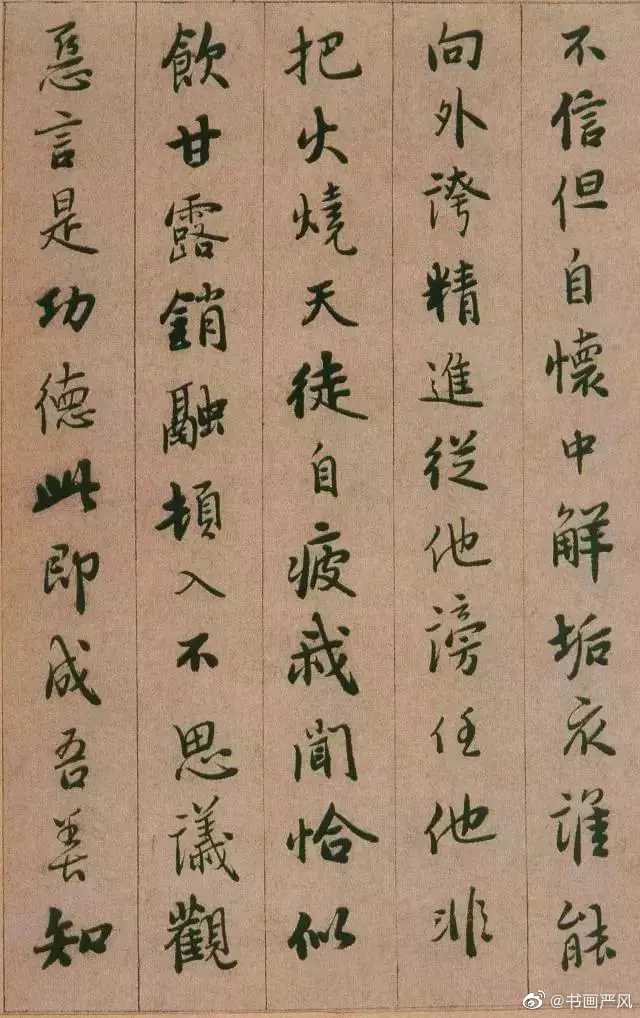 不信但自懷中解垢衣誰能
向外誇精進從他謗任他非
把火燒天徒自疲我聞恰似
飲甘露銷融頓入不思議觀
惡言是功德此即成吾善知
@书画严风